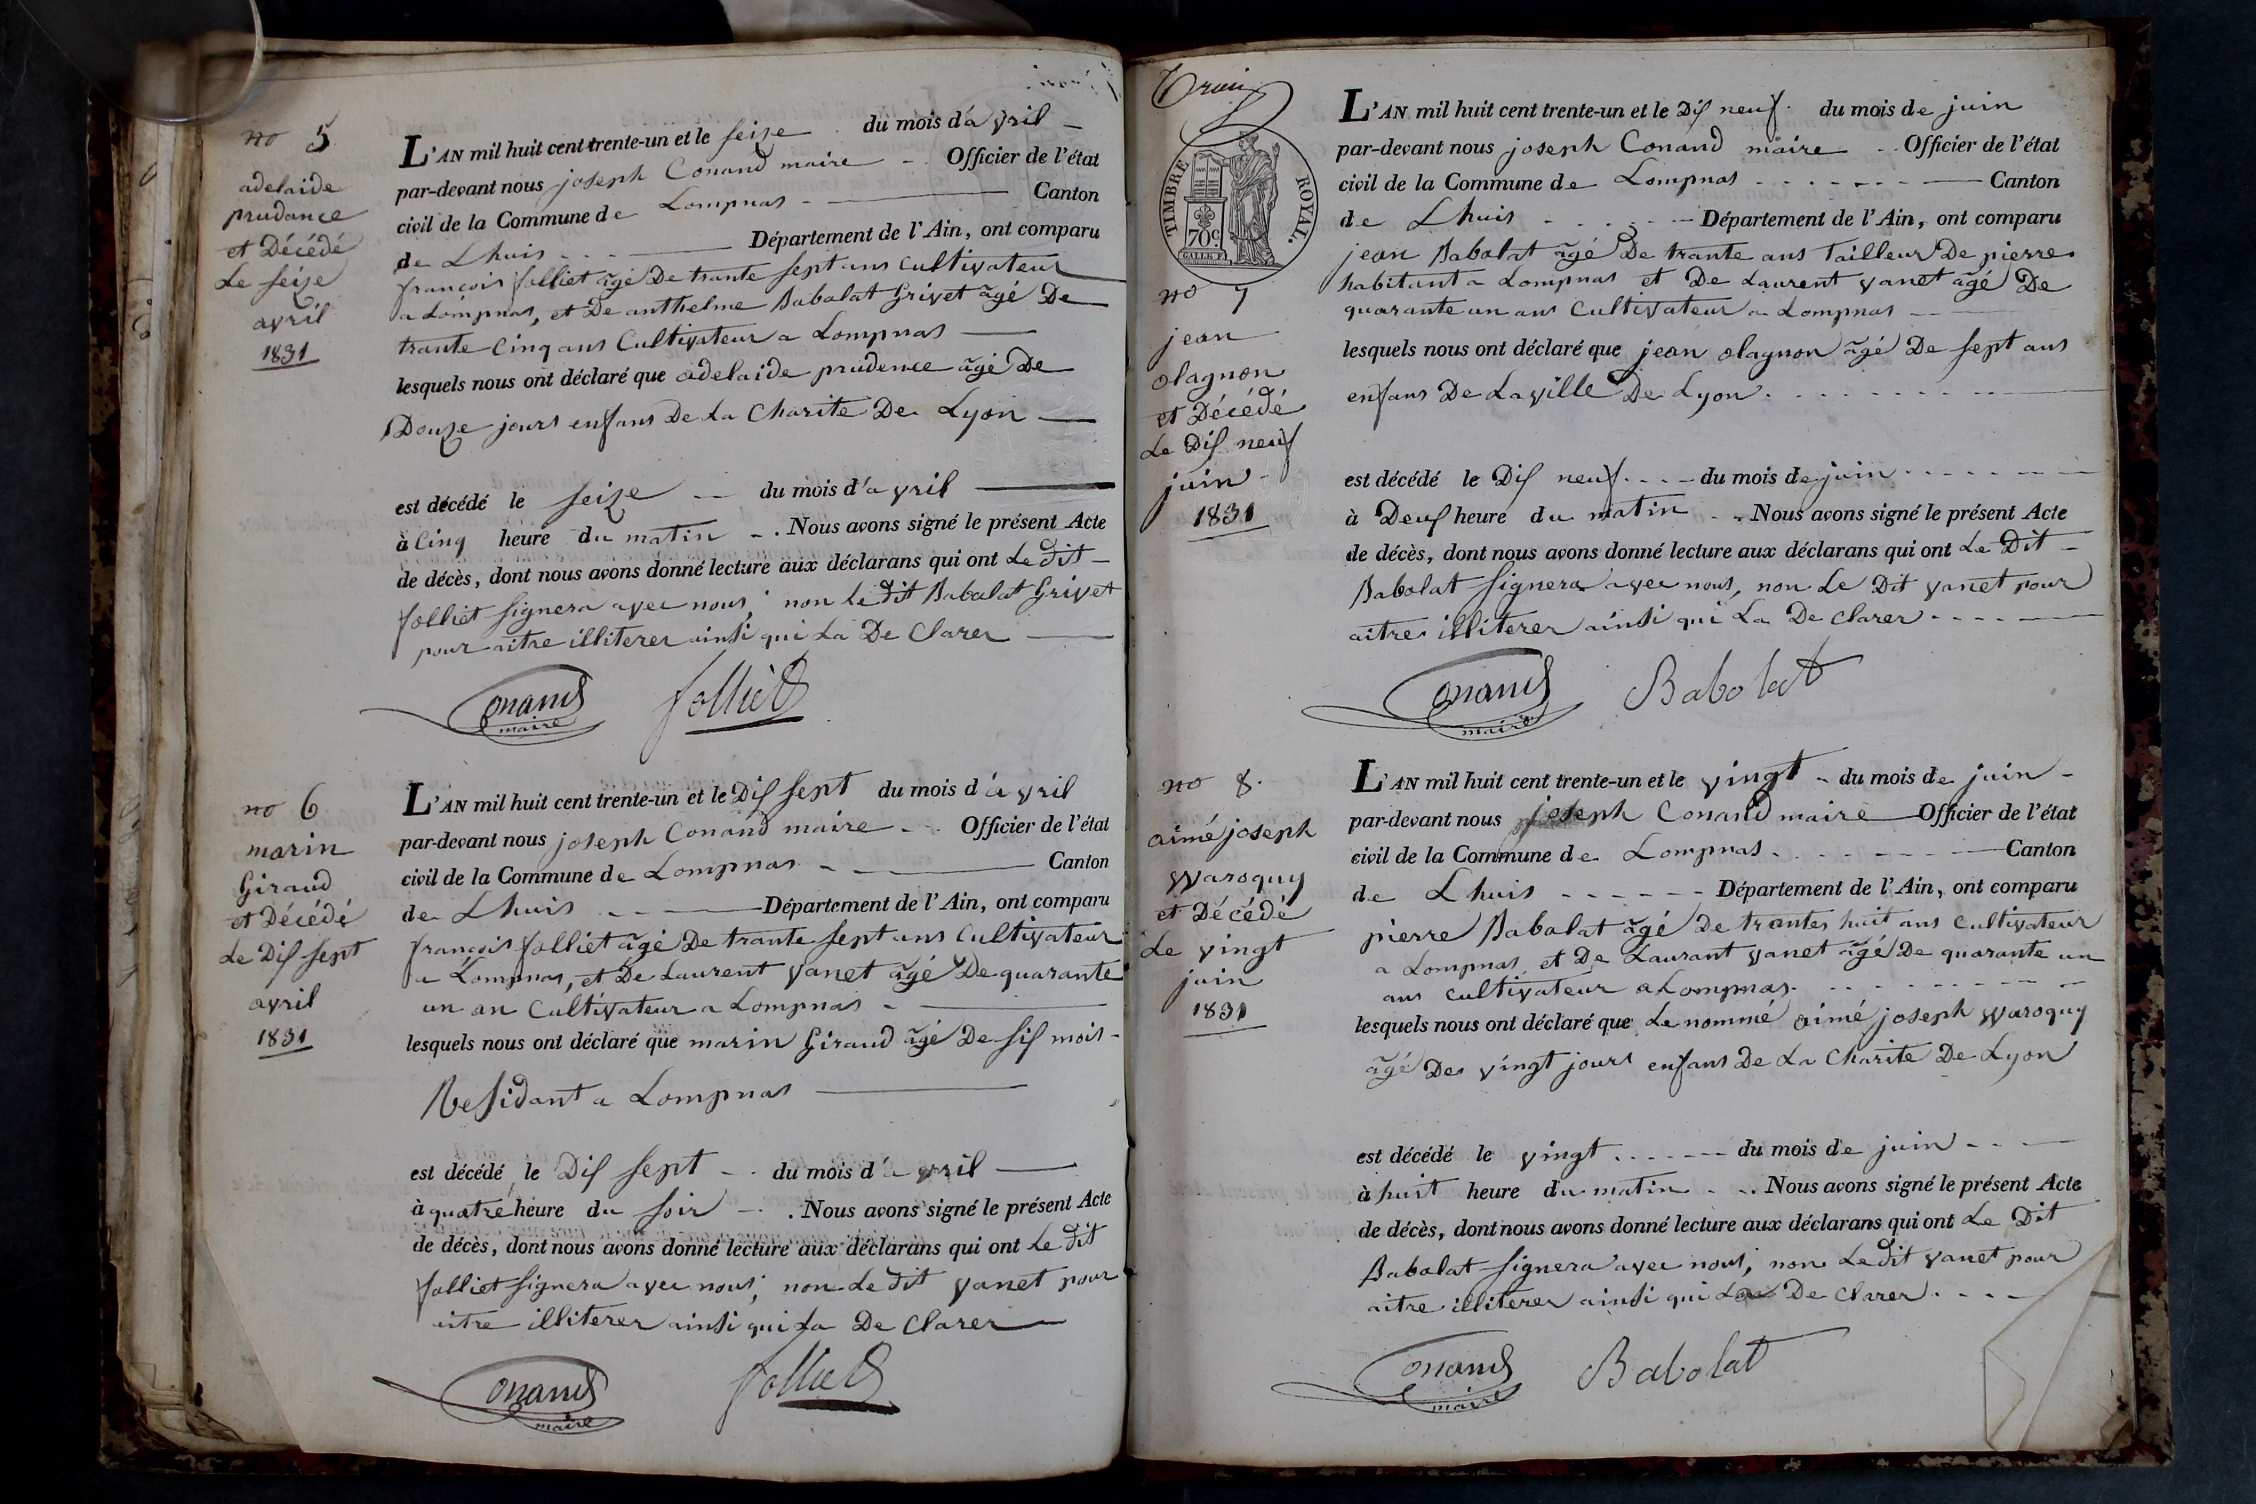 no 5
adelaide
prudance
et Décédé
Le seize
avril
1831
L'AN mil huit cent trente-un et le seize du mois d'avril
par-devant nous joseph Conand maire Officier de l'état
civil de la Commune de Lompnas Canton
de Lhuis Département de l'Ain, ont comparu
françois folliet âgé De trante sept ans Cultivateur
a Lompnas, et De anthelme Babolat Grivet âgé De
trante Cinq ans Cultivateur a Lompnas
lesquels nous ont déclaré que adelaide prudence âgé De
Douze jours enfans De La Charite De Lyon
est décédé le seize du mois d'avril
à Cinq heure du matin Nous avons signé le présent Acte
de décès, dont nous avons donné lecture aux déclarans qui ont Le dit
folliet signera avec nous, non Le dit Babolat Grivet
pour aitre illiterer ainsi qui La De Clarer
Conand
maire
folliet
no 6
marin
Giraud
et Décédé
Le Dis sept
avril
1831
L'AN mil huit cent trente-un et le Dis sept du mois d'avril
par-devant nous joseph Conand maire Officier de l'état
civil de la Commune de Lompnas Canton
de Lhuis Département de l'Ain, ont comparu
françois folliet âgé De trante sept ans Cultivateur
a Lompnas, et De Laurent vanet âgé De quarante
un an Cultivateur a Lompnas
lesquels nous ont déclaré que marin Giraud âgé De sis mois
Residant a Lompnas
est décédé le Dis sept du mois d'avril
à quatre heure du soir Nous avons signé le présent Acte
de décès, dont nous avons donné lecture aux déclarans qui ont Le dit
folliet signera avec nous, non Le dit vanet pour
aitre illiterer ainsi qui La De Clarer
Conand
maire
folliet
TIMBRE ROYAL.
70c
no 7
jean
olagnon
et Décédé
Le Dis neuf
juin
1831
L'AN mil huit cent trente-un et le Dis neuf du mois de juin
par-devant nous joseph Conand maire Officier de l'état
civil de la Commune de Lompnas Canton
de Lhuis Département de l'Ain, ont comparu
jean Babolat âgé De trante ans Tailleur De pierre
habitant a Lompnas et De Laurent vanet âgé De
quarante un ans Cultivateur a Lompnas
lesquels nous ont déclaré que jean olagnon âgé De sept ans
enfans De La ville De Lyon
est décédé le Dis neuf du mois de juin
à Deus heure du matin Nous avons signé le présent Acte
de décès, dont nous avons donné lecture aux déclarans qui ont Le Dit
Babolat signera avec nous, non Le Dit vanet pour
aitre illiterer ainsi qui La De Clarer
Conand
maire
Babolat
no 8
aimé joseph
Waroquy
et Décédé
Le vingt
juin
1831
L'AN mil huit cent trente-un et le vingt du mois de juin
par-devant nous joseph Conand maire Officier de l'état
civil de la Commune de Lompnas Canton
de Lhuis Département de l'Ain, ont comparu
pierre Babolat âgé De trantes huit ans Cultivateur
a Lompnas et De Laurant vanet âgé De quarante un
ans Cultivateur a Lompnas
lesquels nous ont déclaré que Le nommé aimé joseph Waroquy
âgé De vingt jours enfans De La Charite De Lyon
est décédé le vingt du mois de juin
à huit heure du matin Nous avons signé le présent Acte
de décès, dont nous avons donné lecture aux déclarans qui ont Le Dit
Babolat signera avec nous, non Le dit vanet pour
aitre illiterer ainsi qui La De Clarer
Conand
maire
Babolat